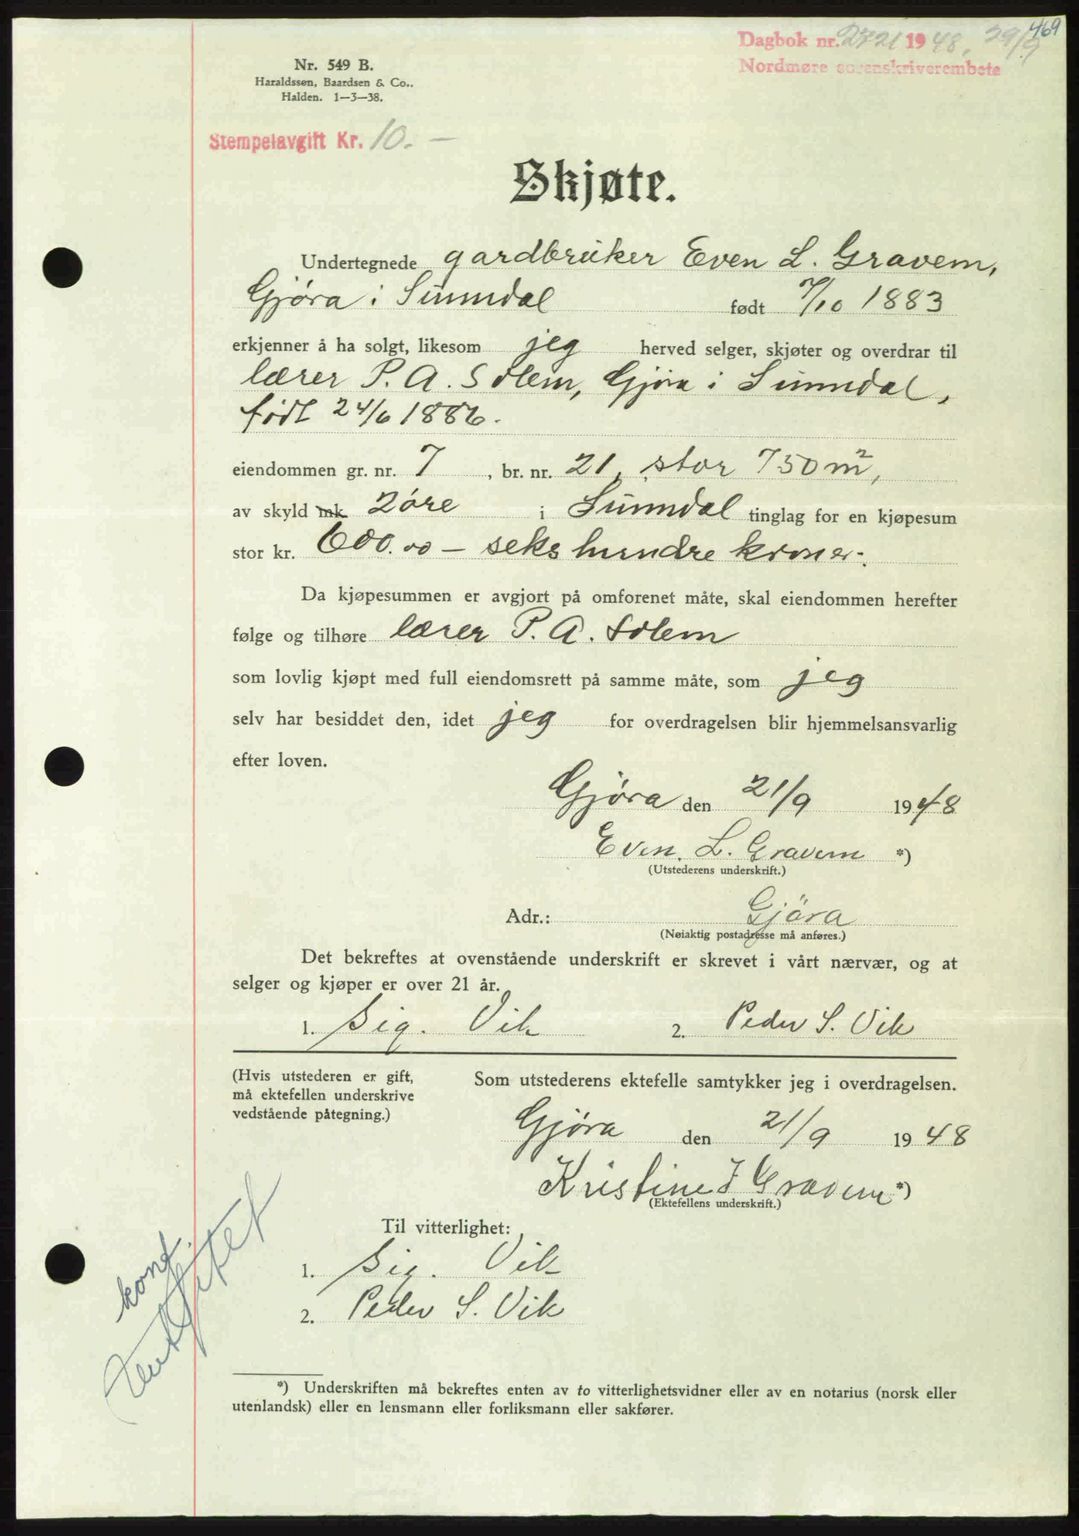 469
Dagbok nr. 2721 1948, 29/9
Nordmøre sorenskriverembete
Nr. 549 B.
Haraldssen, Baardsen & Co..
Halden. 1—3—38.
Stempelavgift Kr. 10. —
Skjøte.
Undertegnede gardbruker Even L. Gravem,
Gjøra i Sunndal født 7/10 1883
erkjenner å ha solgt, likesom jeg herved selger, skjøter og overdrar til
lærer P. A. Solem, Gjøra i Sunndal,
født 24/6 1886.
eiendommen gr. nr. 7, br. nr. 21, stor 750 m²,
av skyld mk 2 øre i Sunndal tinglag for en kjøpesum
stor kr. 600.00 — seks hundre kroner.
Da kjøpesummen er avgjort på omforenet måte, skal eiendommen herefter
følge og tilhøre lærer P. A. Solem
som lovlig kjøpt med full eiendomsrett på samme måte, som jeg
selv har besiddet den, idet jeg for overdragelsen blir hjemmelsansvarlig
efter loven.
Gjøra den 21/9 1948
Even. L. Gravem *)
(Utstederens underskrift.)
Adr.: Gjöra
(Nøiaktig postadresse må anføres.)
Det bekreftes at ovenstående underskrift er skrevet i vårt nærvær, og at
selger og kjøper er over 21 år.
1. Sig. Vik 2. Peder S. Vik
(Hvis utstederen er gift,
må ektefellen underskrive
vedstående påtegning.)
Som utstederens ektefelle samtykker jeg i overdragelsen.
Gjøra den 21/9 1948
Kristine J Gravem *)
(Ektefellens underskrift.)
Til vitterlighet:
1. Sig. Vik
2. Peder S. Vik
konf.
*) Underskriften må bekreftes enten av to vitterlighetsvidner eller av en notarius (norsk eller
utenlandsk) eller en lensmann eller forliksmann eller sakfører.